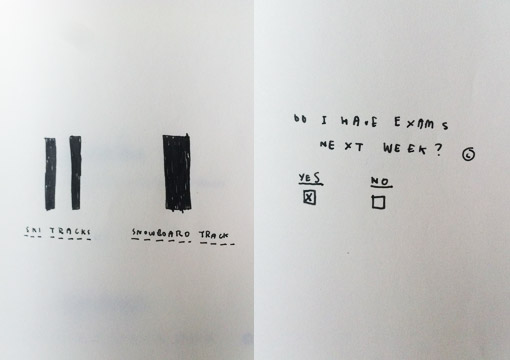 SKI TRACKS
SNOWBOARD TRACK
DO I HAVE EXAMS
NEXT WEEK?
YES NO
X